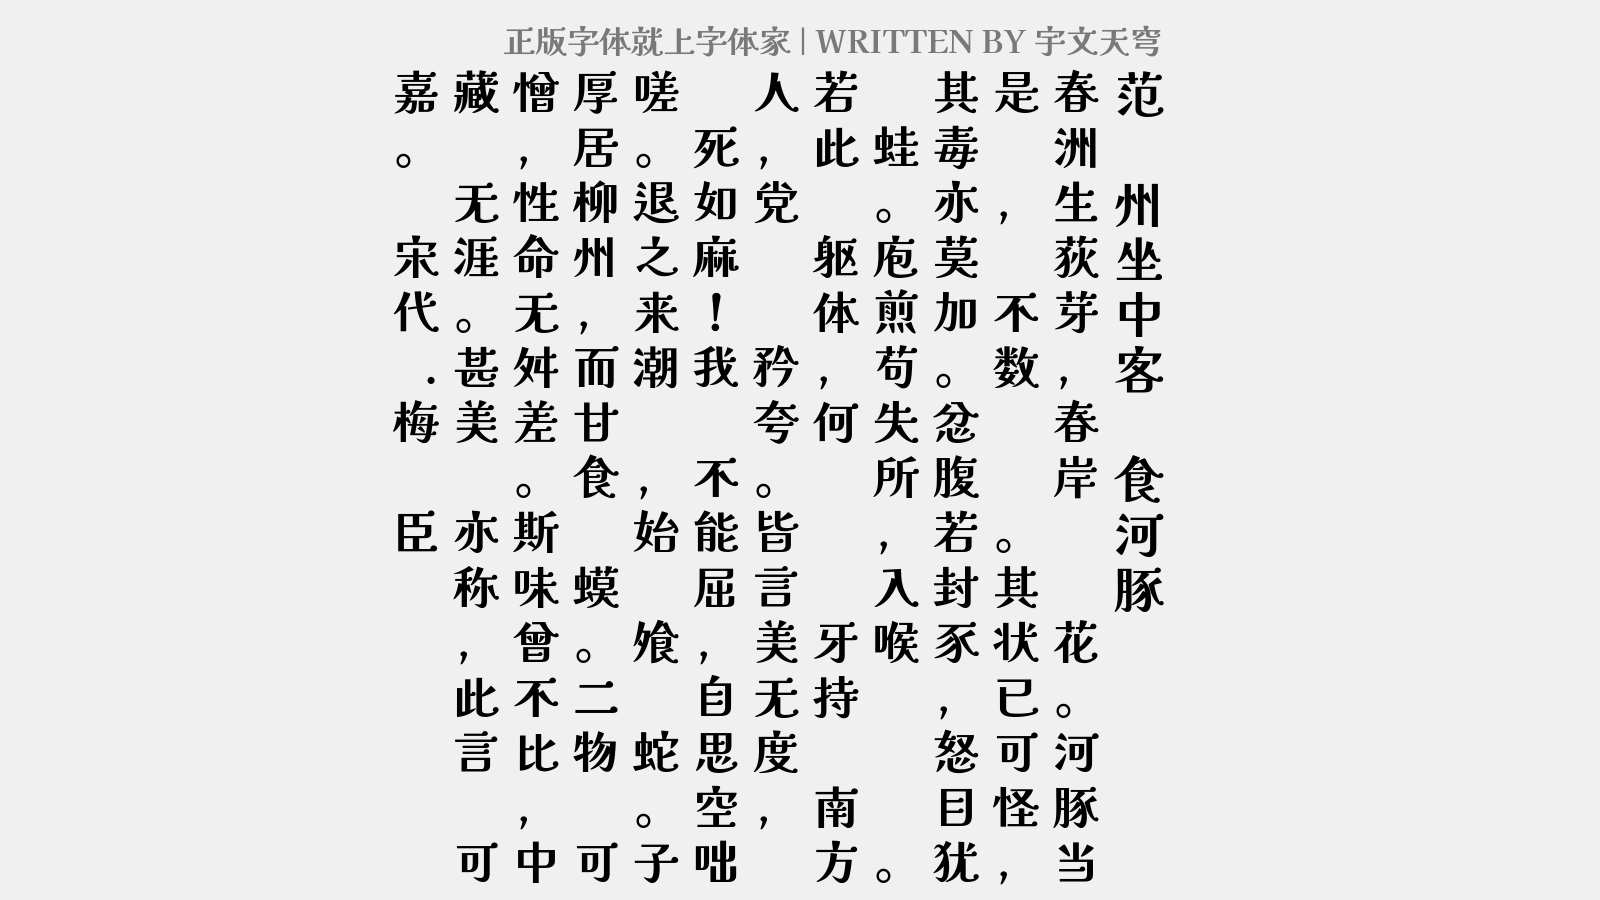 正版字体就上字体家 | WRITTEN BY 宇文天穹
范 州坐中客 食河豚
春洲生荻芽，春岸 花。河豚当
是 ， 不数 。其状已可怪，
其毒亦莫加。忿腹若封豕，怒目犹
蛙。庖煎苟失所，入喉 。
若此 躯体，何 牙持 南方
人，党 矜夸。皆言美无度，
死如麻！我 不能屈，自思空咄
嗟。退之来潮 ，始 飧 蛇。子
厚居柳州，而甘食 蟆。二物 可
憎，性命无舛差。斯味曾不比，中
藏 无涯。甚美 亦称，此言 可
嘉。 宋代.梅 臣